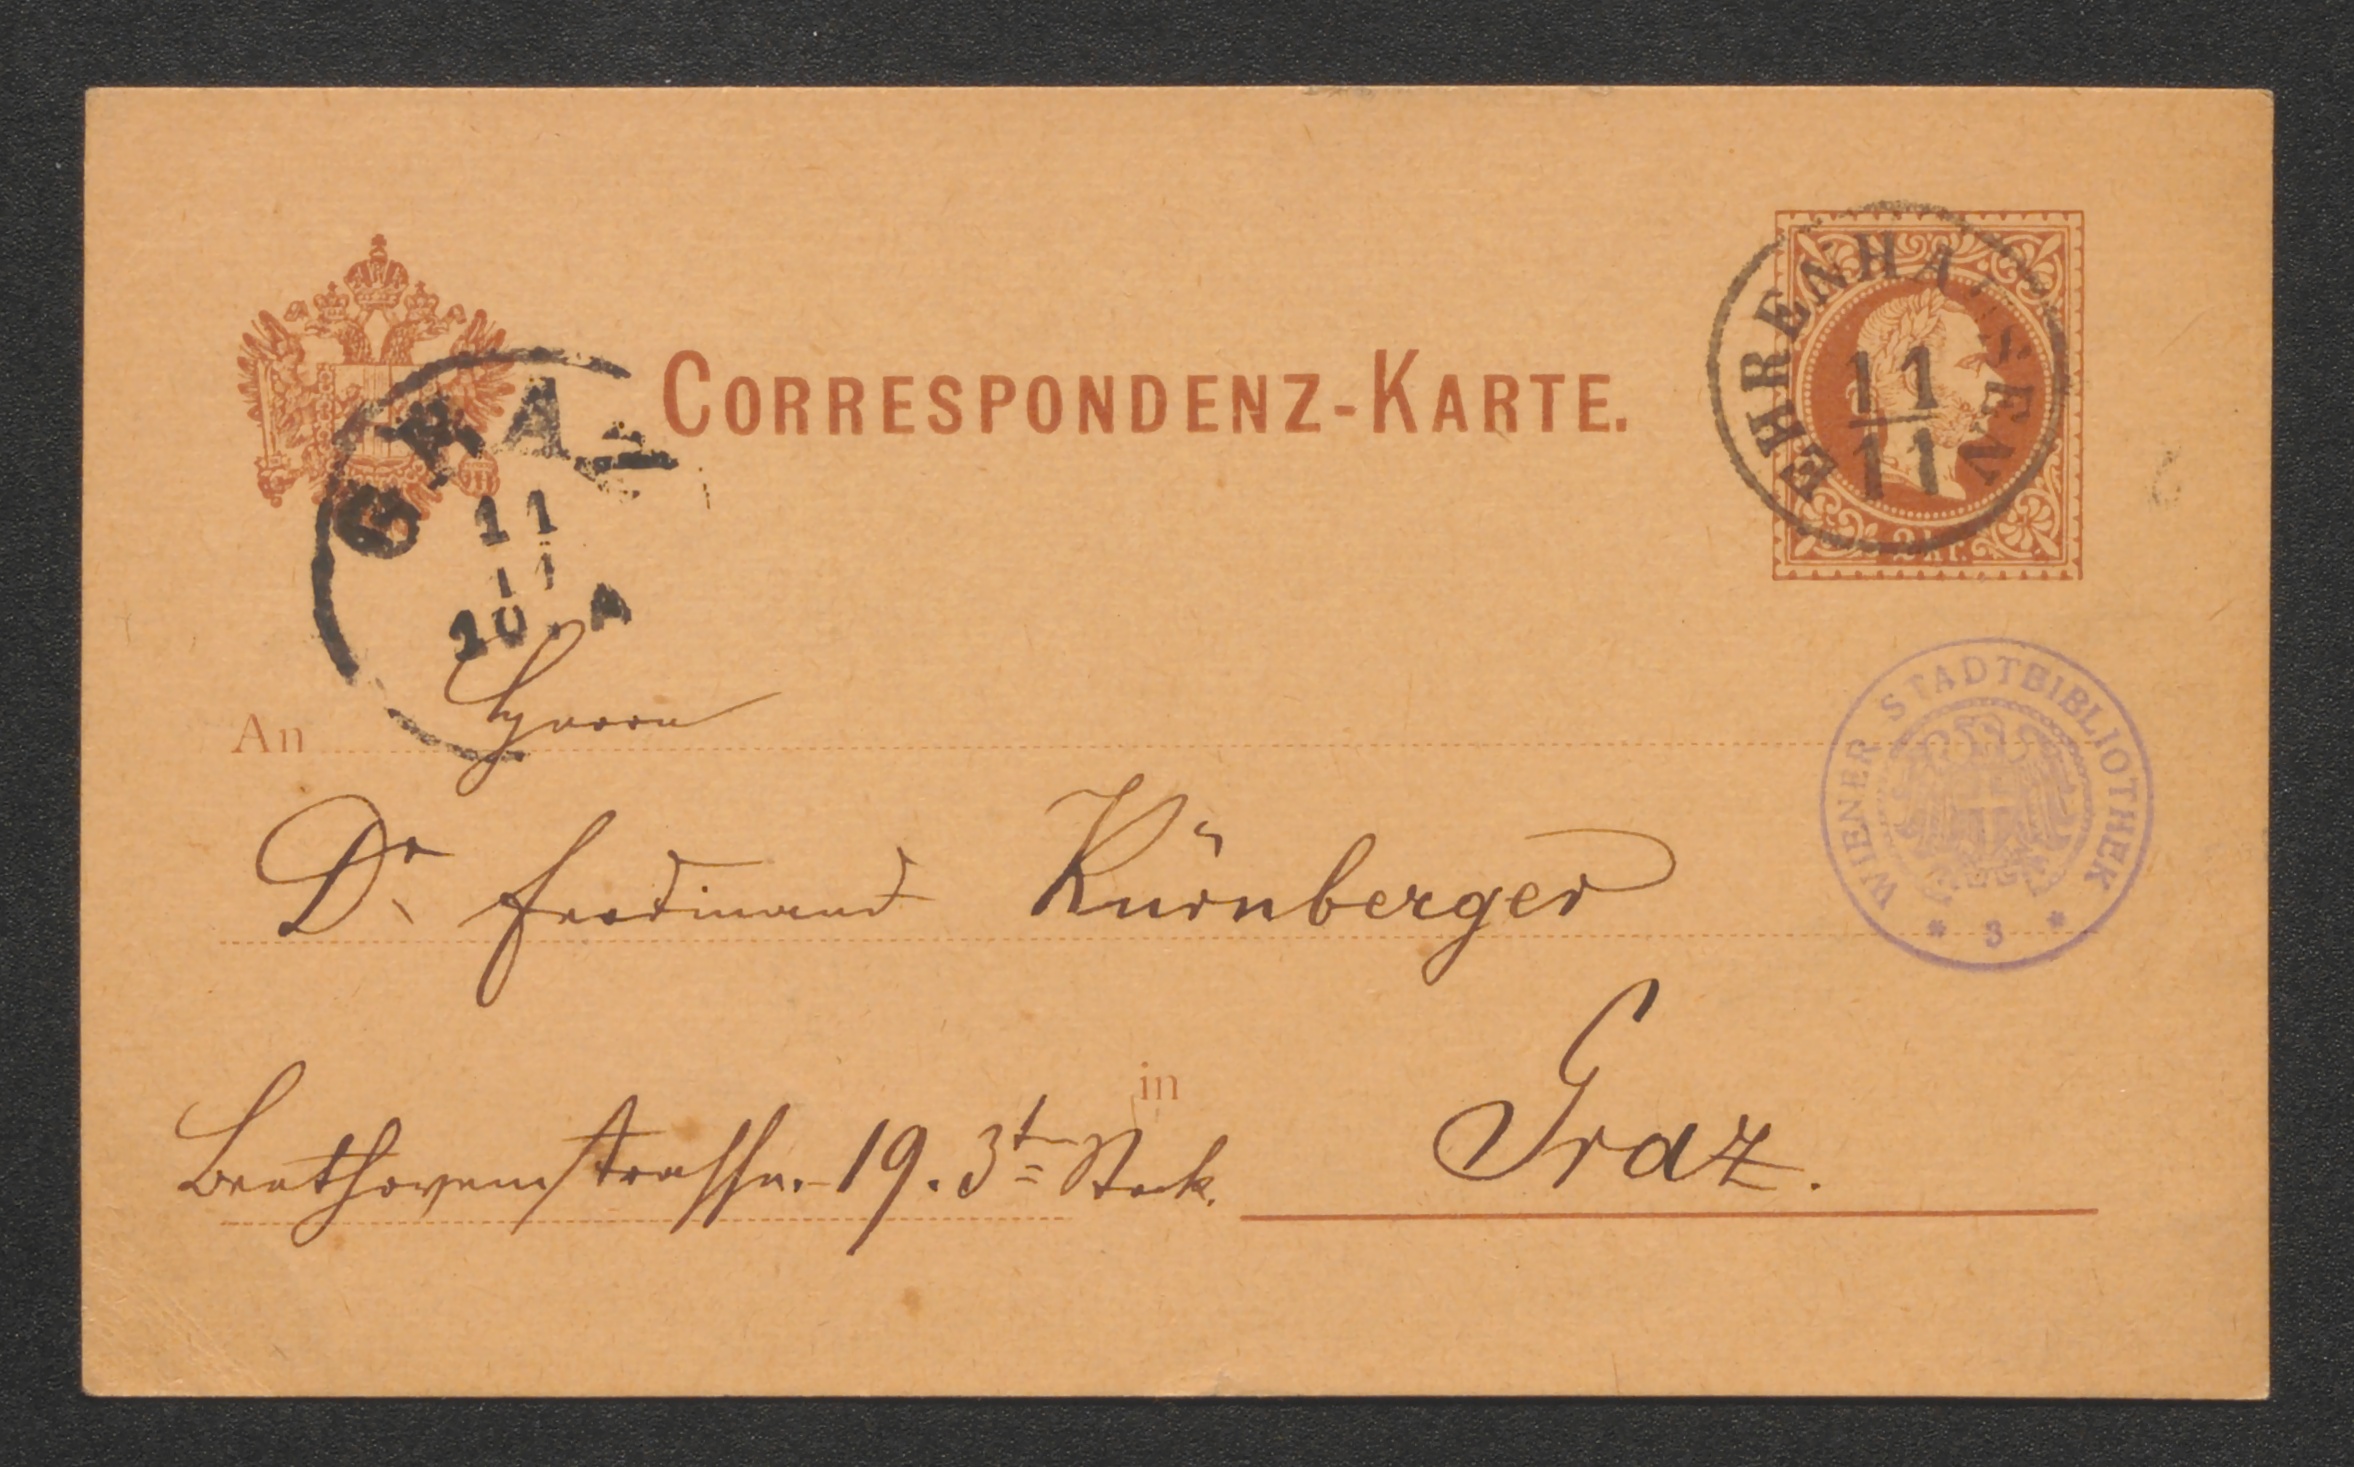 CORRESPONDENZ-KARTE.
EHRENHAUSEN
11
11
2 kr.
GRAZ
11
11
10. A
WIENER STADTBIBLIOTHEK
* 3 *
An Herrn
Dr. Ferdinand Kürnberger
in Graz.
Beethovenstrasse. 19. 3t Stock.